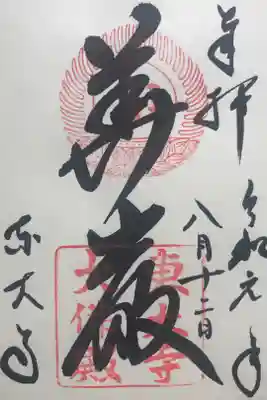 奉拝
令和元年
八月十二日
華厳
東大寺
東大寺
大佛殿